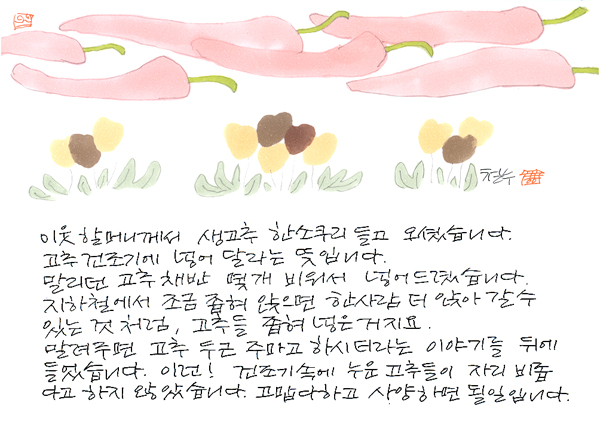 철수
이웃 할머니께서 생고추 한소쿠리 들고 오셨습니다.
고추건조기에 넣어 달라는 뜻입니다.
말리던 고추 채반 몇개 비워서 넣어드렸습니다.
지하철에서 조금 좁혀 앉으면 한사람 더 앉아 갈 수
있는 것 처럼, 고추들 좁혀 넣은 거지요.
말려주면 고추 두근 주마고 하시더라는 이야기를 뒤에
들었습니다. 이런! 건조기속에 누운 고추들이 자리 비좁
다고 하지 않았습니다. 고맙다하고 사양하면 될일입니다.